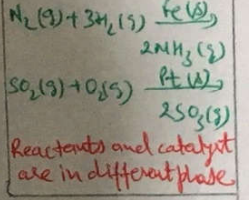 N₂(g) + 3H₂(g) Fe(s)→
2NH₃(g)
SO₂(g) + O₂(g) Pt(s)→
2SO₃(g)
Reactants and catalyst
are in different phase